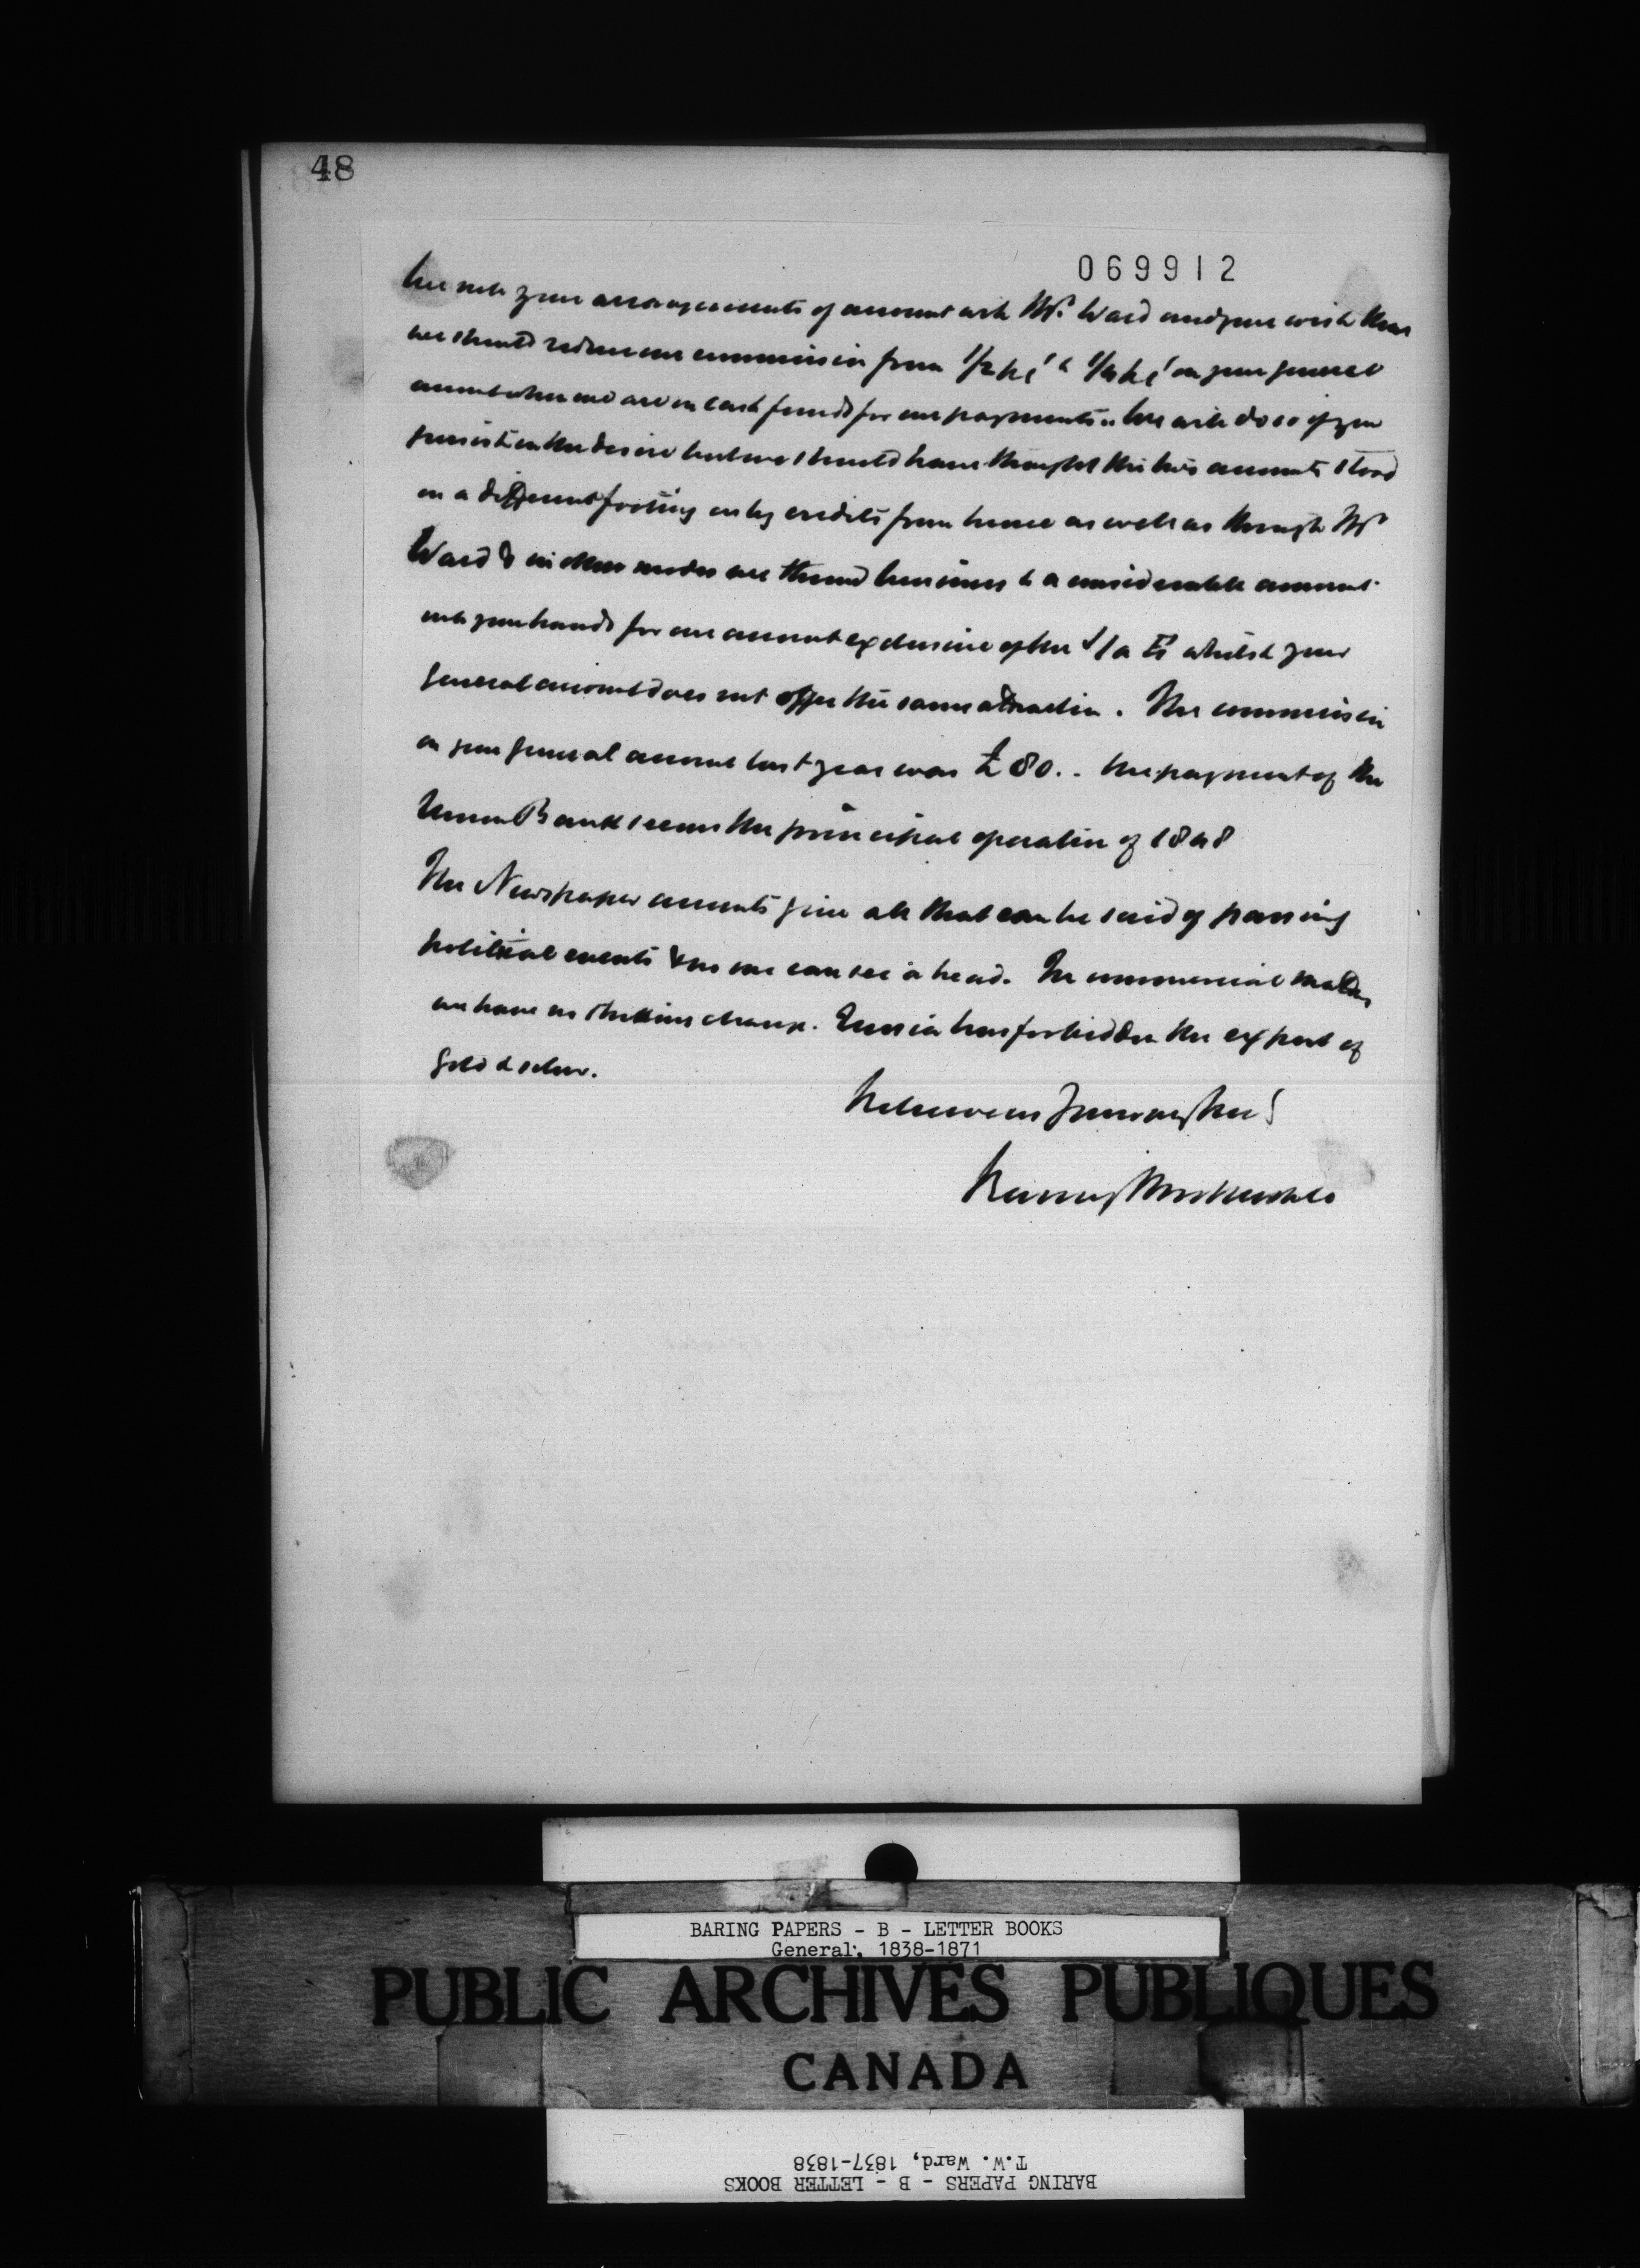 48
069912
We note your arrangements of account with Mr. Ward and your wish that
we should reduce our commission from 1/2 pct to 1/4 pct on your general
account when we are in cash funds for our payments.. We will do so if you
persist in the desire but we should have thought the two accounts stood
on a different footing as by credits from hence as well as through Mr
Ward & in other modes we throw business to a considerable amount
into your hands for our account exclusive of the J/a Es whilst your
General account does not offer the same attraction. The commission
on your General account last year was £80.. the payment of the
Union Bank seems the principal operation of 1848
The Newspaper accounts give all that can be said of passing
political events & no one can see a head. In commercial matters
we have no striking change. Russia has forbidden the export of
Gold & silver.
We have
Baring Brothers & Co
BARING PAPERS - B - LETTER BOOKS
General, 1838-1871
PUBLIC ARCHIVES PUBLIQUES
CANADA
T.W. Ward, 1837-1838
BARING PAPERS - B - LETTER BOOKS